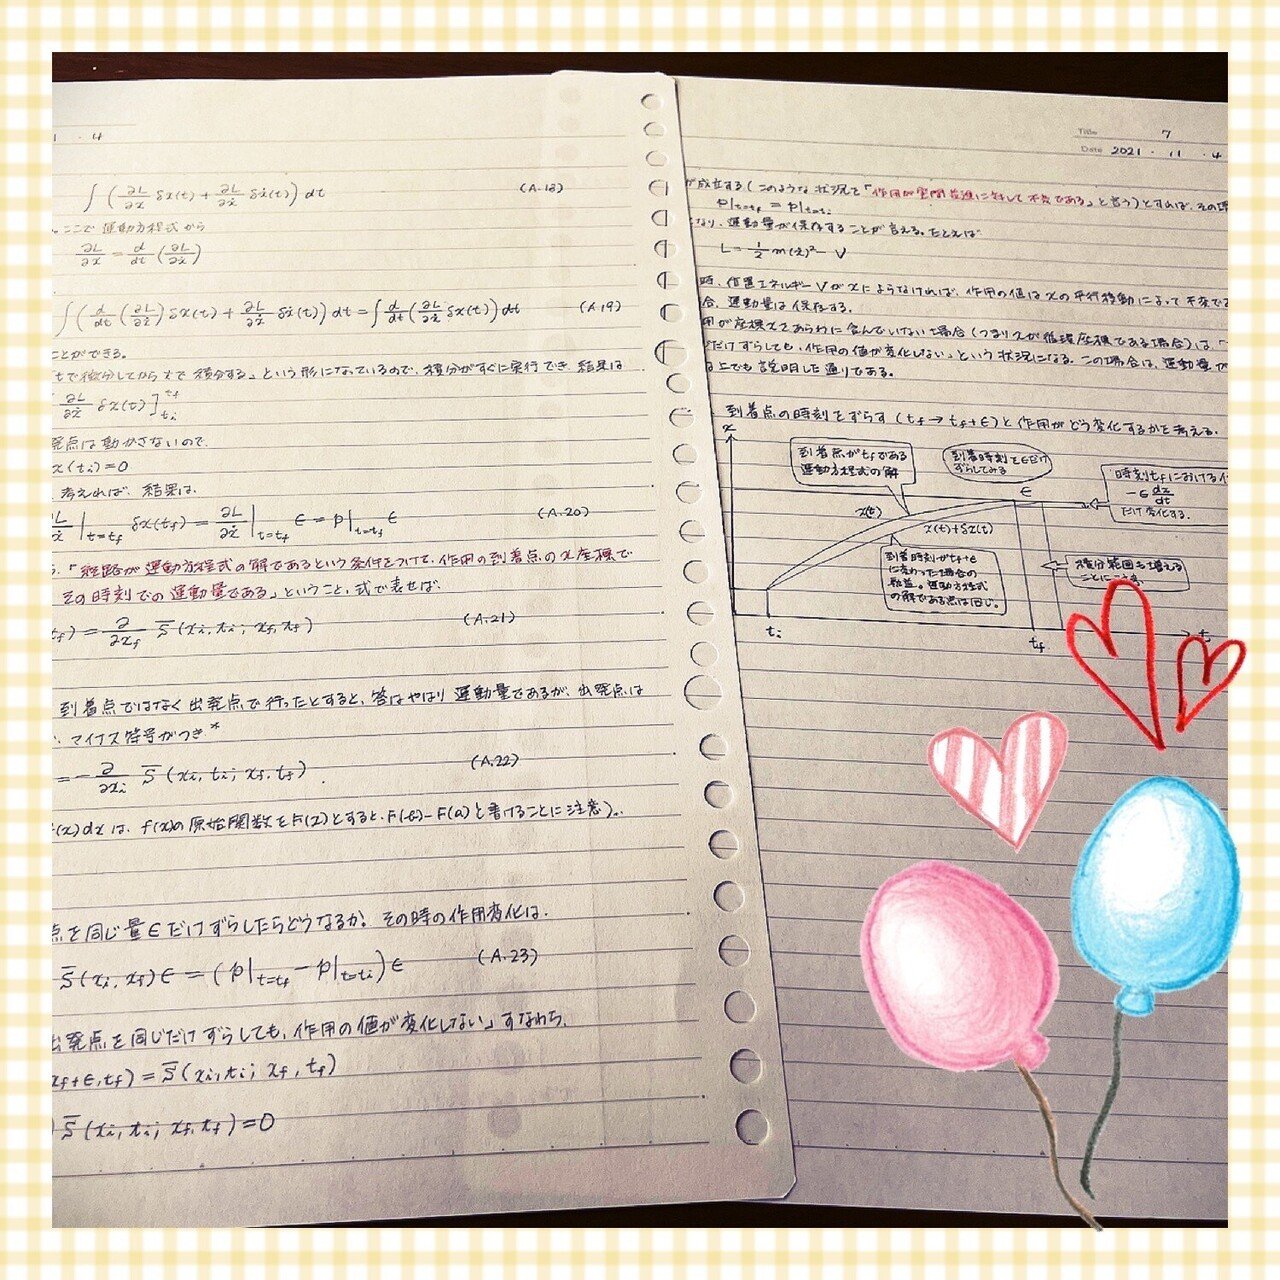 1 . 4
∫ ( ∂L/∂x δx(t) + ∂L/∂ẋ δẋ(t) ) dt (A.18)
ここで 運動方程式から
∂L/∂x = d/dt (∂L/∂ẋ)
∫ ( d/dt (∂L/∂ẋ) δx(t) + ∂L/∂ẋ δẋ(t) ) dt = ∫ d/dt (∂L/∂ẋ δx(t)) dt (A.19)
ことができる。
tで微分してからtで積分する」という形になっているので、積分がすぐに実行でき、結果は
∂L/∂ẋ δx(t) ]tf ti
発点は動かさないので、
x(ti)=0
考えれば、結果は、
∂L/∂ẋ |t=tf δx(tf) = ∂L/∂ẋ |t=tf ε = p|t=tf ε (A.20)
「経路が運動方程式の解であるという条件をつけて、作用の到着点のx座標で
その時刻での運動量である」ということ、式で表せば
tf) = ∂/∂xf S̄ (xi, ti; xf, tf) (A.21)
到着点ではなく出発点で行ったとすると、答はやはり運動量であるが、出発点は
マイナス符号がつき*
= -∂/∂xi S̄ (xi, ti; xf, tf) (A.22)
f(x)dxは、f(x)の原始関数をF(x)とすると、F(b)-F(a)と書けることに注意)。
点を同じ量εだけずらしたらどうなるか？その時の作用変化は、
S̄(xi, xf)ε = (p|t=tf - p|t=ti)ε (A.23)
出発点を同じだけずらしても、作用の値が変化しない」すなわち、
xf+ε, tf) = S̄(xi, ti; xf, tf)
) S̄ (xi, ti; xf, tf) = 0
Title 7
Date 2021 . 11 . 4
が成立する(このような状況を「作用が空間並進に対して不変である」と言う)とすれば、その時
p|t=tf = p|t=ti
となり、運動量が保存することが言える。たとえば
L = 1/2 m(ẋ)² - V
時、位置エネルギーVがxによらなければ、作用の値はxの平行移動によって不変で
合、運動量は保存する。
用が座標xをあらわに含んでいない場合(つまりxが循環座標である場合)は、「
だけずらしても、作用の値が変化しない」という状況になる。この場合は、運動量が
上でも説明した通りである。
到着点の時刻をずらす(tf→tf+ε)と作用がどう変化するかを考える。
x
到着点がtfである
運動方程式の解
到着時刻をεだけ
ずらしてみる
時刻tfにおける
-ε dx/dt
だけ変化する。
ε
x(t)
x(t)+δx(t)
到着時刻がtf+ε
に変わった場合の
経路。運動方程式
の解である点は同じ。
積分範囲も増える
ことに
ti
tf
t